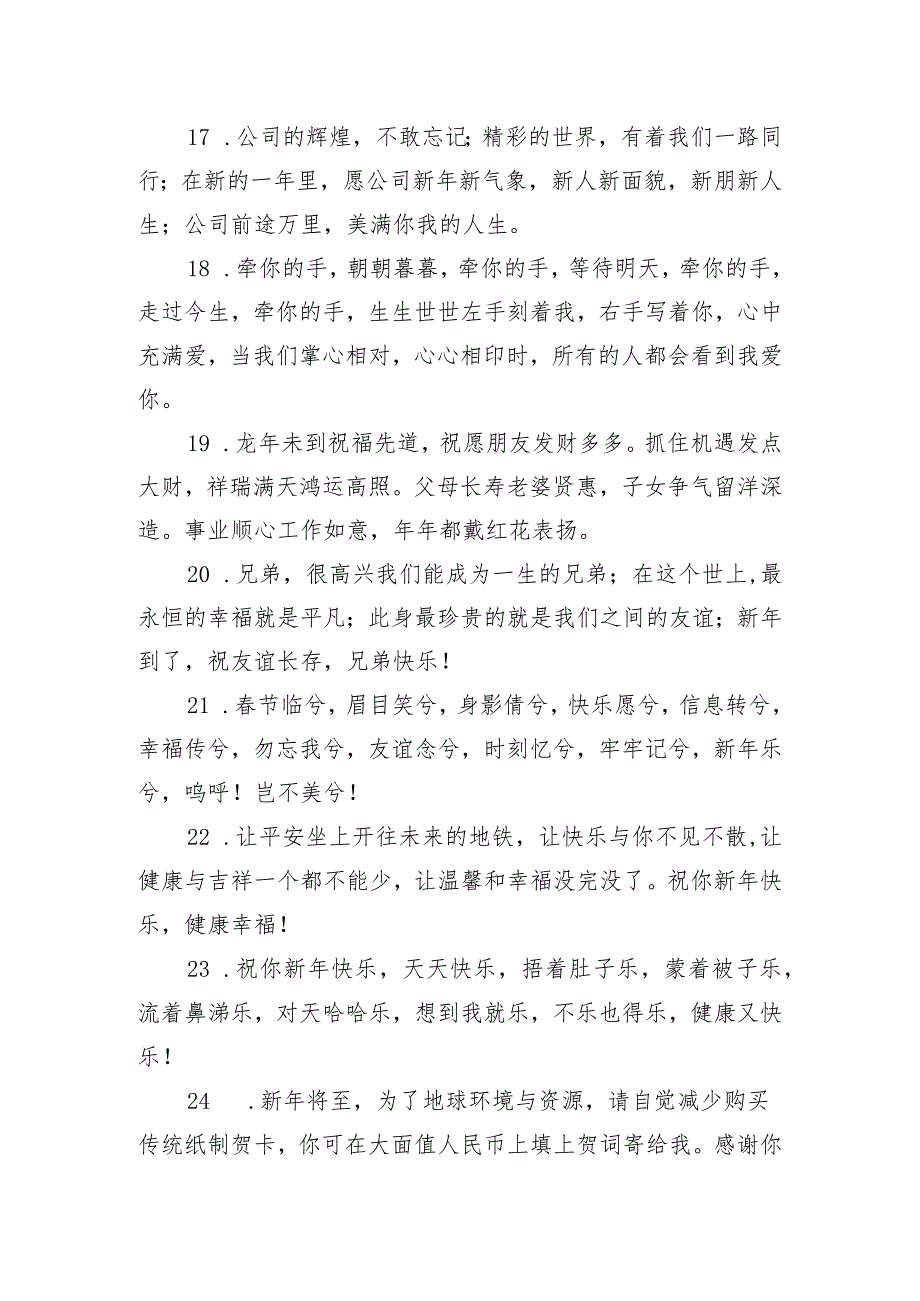 17 .公司的辉煌，不敢忘记；精彩的世界，有着我们一路同
行；在新的一年里，愿公司新年新气象，新人新面貌，新朋新人
生；公司前途万里，美满你我的人生。
18 .牵你的手，朝朝暮暮，牵你的手，等待明天，牵你的手，
走过今生，牵你的手，生生世世左手刻着我，右手写着你，心中
充满爱，当我们掌心相对，心心相印时，所有的人都会看到我爱
你。
19 .龙年未到祝福先道，祝愿朋友发财多多。抓住机遇发点
大财，祥瑞满天鸿运高照。父母长寿老婆贤惠，子女争气留洋深
造。事业顺心工作如意，年年都戴红花表扬。
20 .兄弟，很高兴我们能成为一生的兄弟；在这个世上,最
永恒的幸福就是平凡；此身最珍贵的就是我们之间的友谊；新年
到了，祝友谊长存，兄弟快乐！
21 .春节临兮，眉目笑兮，身影倩兮，快乐愿兮，信息转兮，
幸福传兮，勿忘我兮，友谊念兮，时刻忆兮，牢牢记兮，新年乐
兮，呜呼！岂不美兮！
22 .让平安坐上开往未来的地铁，让快乐与你不见不散,让
健康与吉祥一个都不能少，让温馨和幸福没完没了。祝你新年快
乐，健康幸福！
23 .祝你新年快乐，天天快乐，捂着肚子乐，蒙着被子乐，
流着鼻涕乐，对天哈哈乐，想到我就乐，不乐也得乐，健康又快
乐！
24 .新年将至，为了地球环境与资源，请自觉减少购买
传统纸制贺卡，你可在大面值人民币上填上贺词寄给我。感谢你